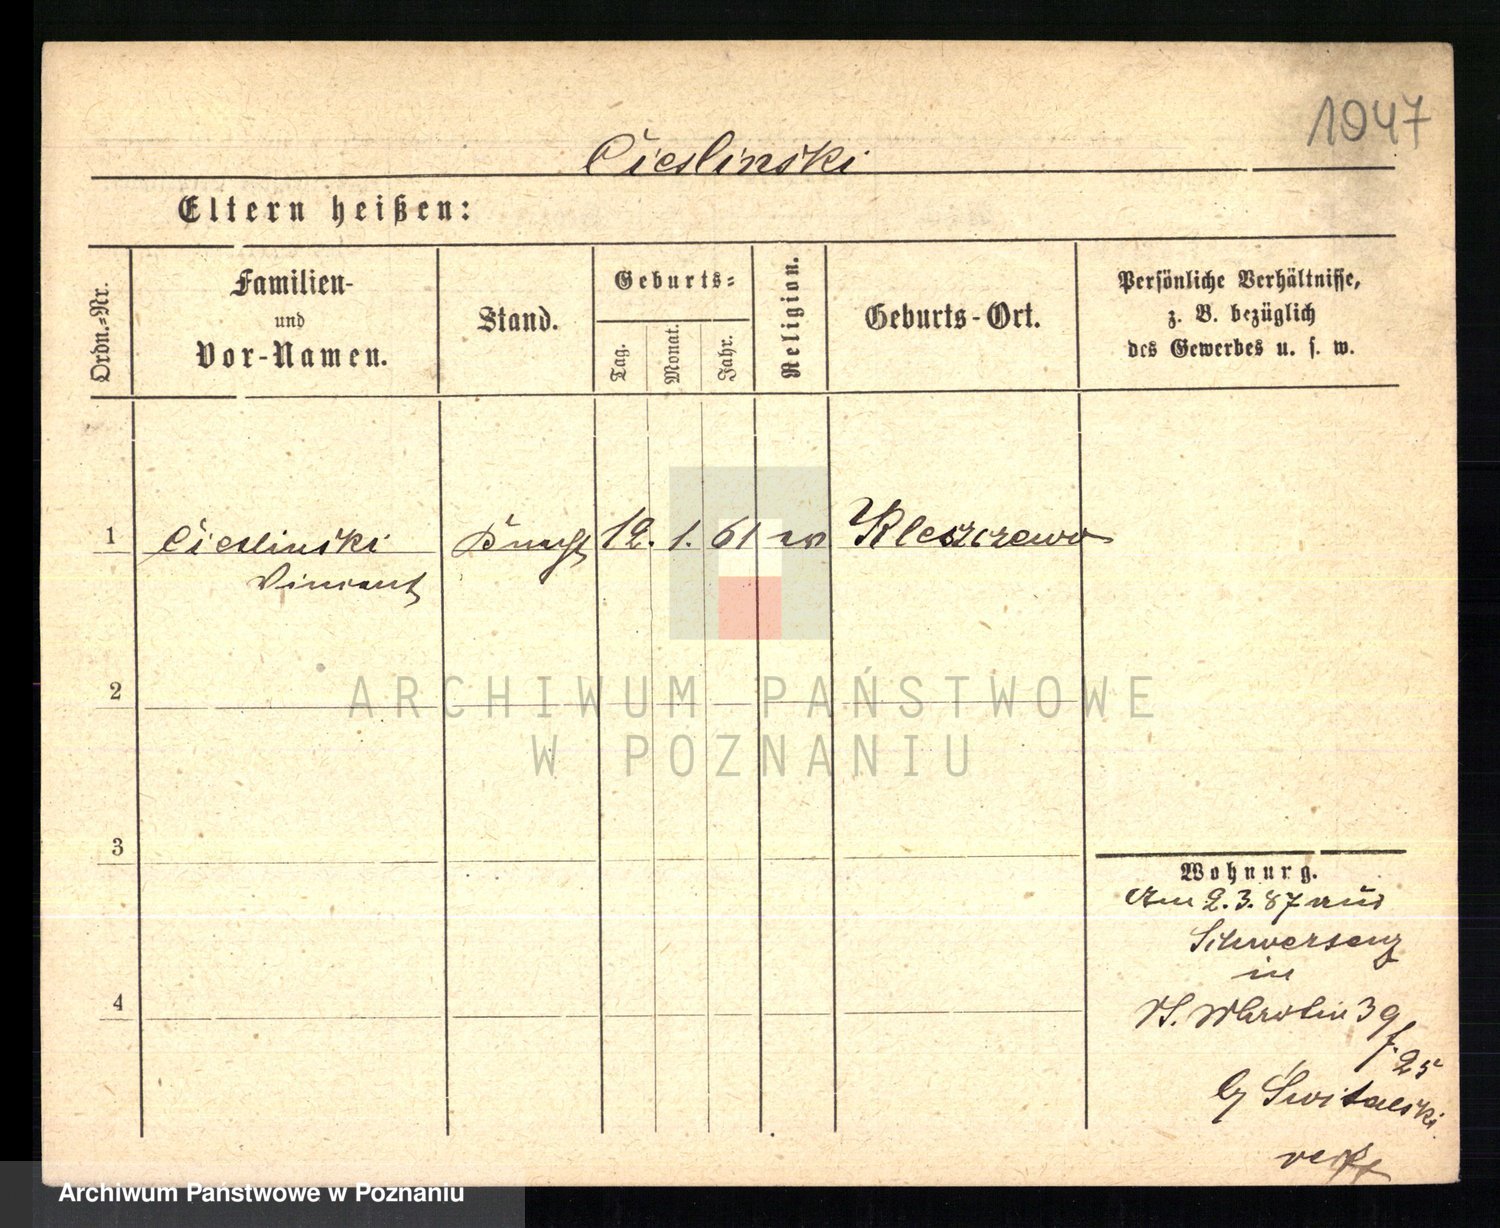 1947
Cieslinski
Eltern heißen:
Ordn.-Nr.
Familien-
und
Vor-Namen.
Stand.
Geburts-
Tag.
Monat.
Jahr.
Religion.
Geburts-Ort.
Persönliche Verhältnisse,
z. B. bezüglich
des Gewerbes u. s. w.
1 Cieslinski Knecht 12. 1. 61 Kleszczewo
Vincent
2
ARCHIWUM PAŃSTWOWE
W POZNANIU
3
Wohnung.
Am 2.3.87 aus
Schwersenz
in
4
39
25
by Switalski
Archiwum Państwowe w Poznaniu